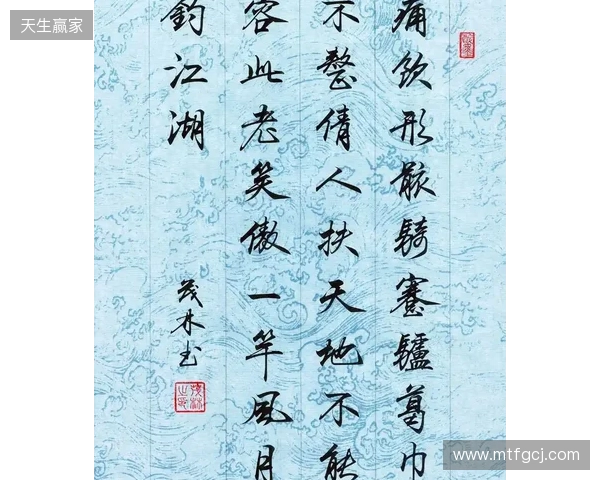 天生赢家
痛飲形骸騎蹇驢葛巾
不整倩人扶天地不能
容此老笑傲一竿風月
釣江湖
茂林书
www.mtfgcj.com